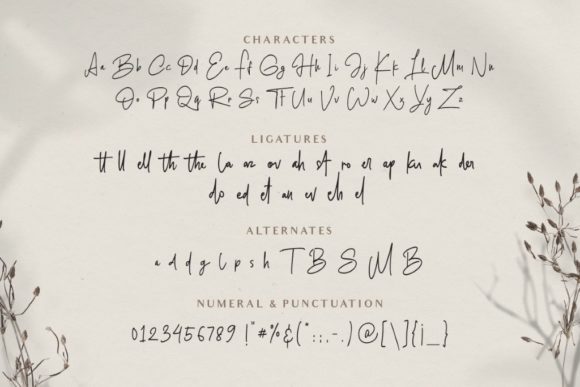 CHARACTERS
Aa Bb Cc Dd Ee Ff Gg Hh Ii Jj Kk Ll Mm Nn
Oo Pp Qq Rr Ss Tt Uu Vv Ww Xx Yy Zz
LIGATURES
tt ll ell th the la az ov ah st ro er ap kan ak der
do ed et an ev eh el
ALTERNATES
a d d g l p s h T B S M B
NUMERAL & PUNCTUATION
0123456789 !"#%&(*:;,-.)@[\]{¡_}